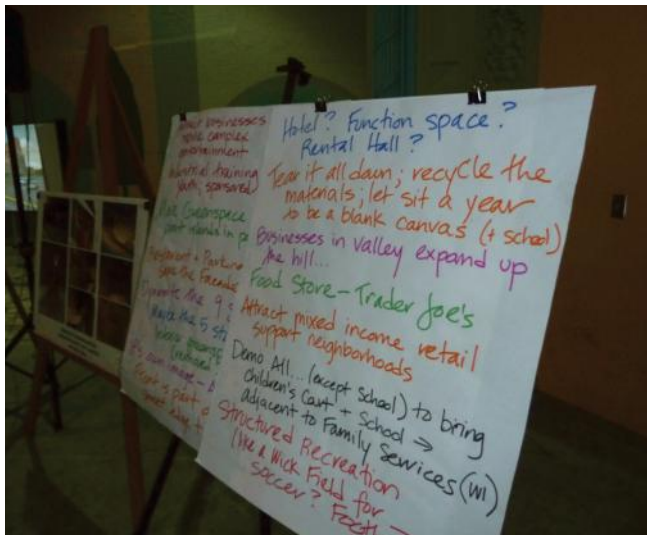 businesses
complex
entertainment
industrial training
youth; sponsored)
Greenspace
islands in
Restaurant + Parking
Save the Facade
Dynamite the 9
Maybe the 5
It's own image -
part
street edge
Hotel? Function space?
Rental Hall?
Tear it all down; recycle the
materials; let sit a year
to be a blank canvas (+ school)
Businesses in valley expand up
the hill...
Food Store - Trader Joe's
Attract mixed income retail
support neighborhoods
Demo All... (except School) to bring
children's Court + School →
adjacent to Family Services (WI
Structured Recreation
(like a Wick Field for
soccer? Footb